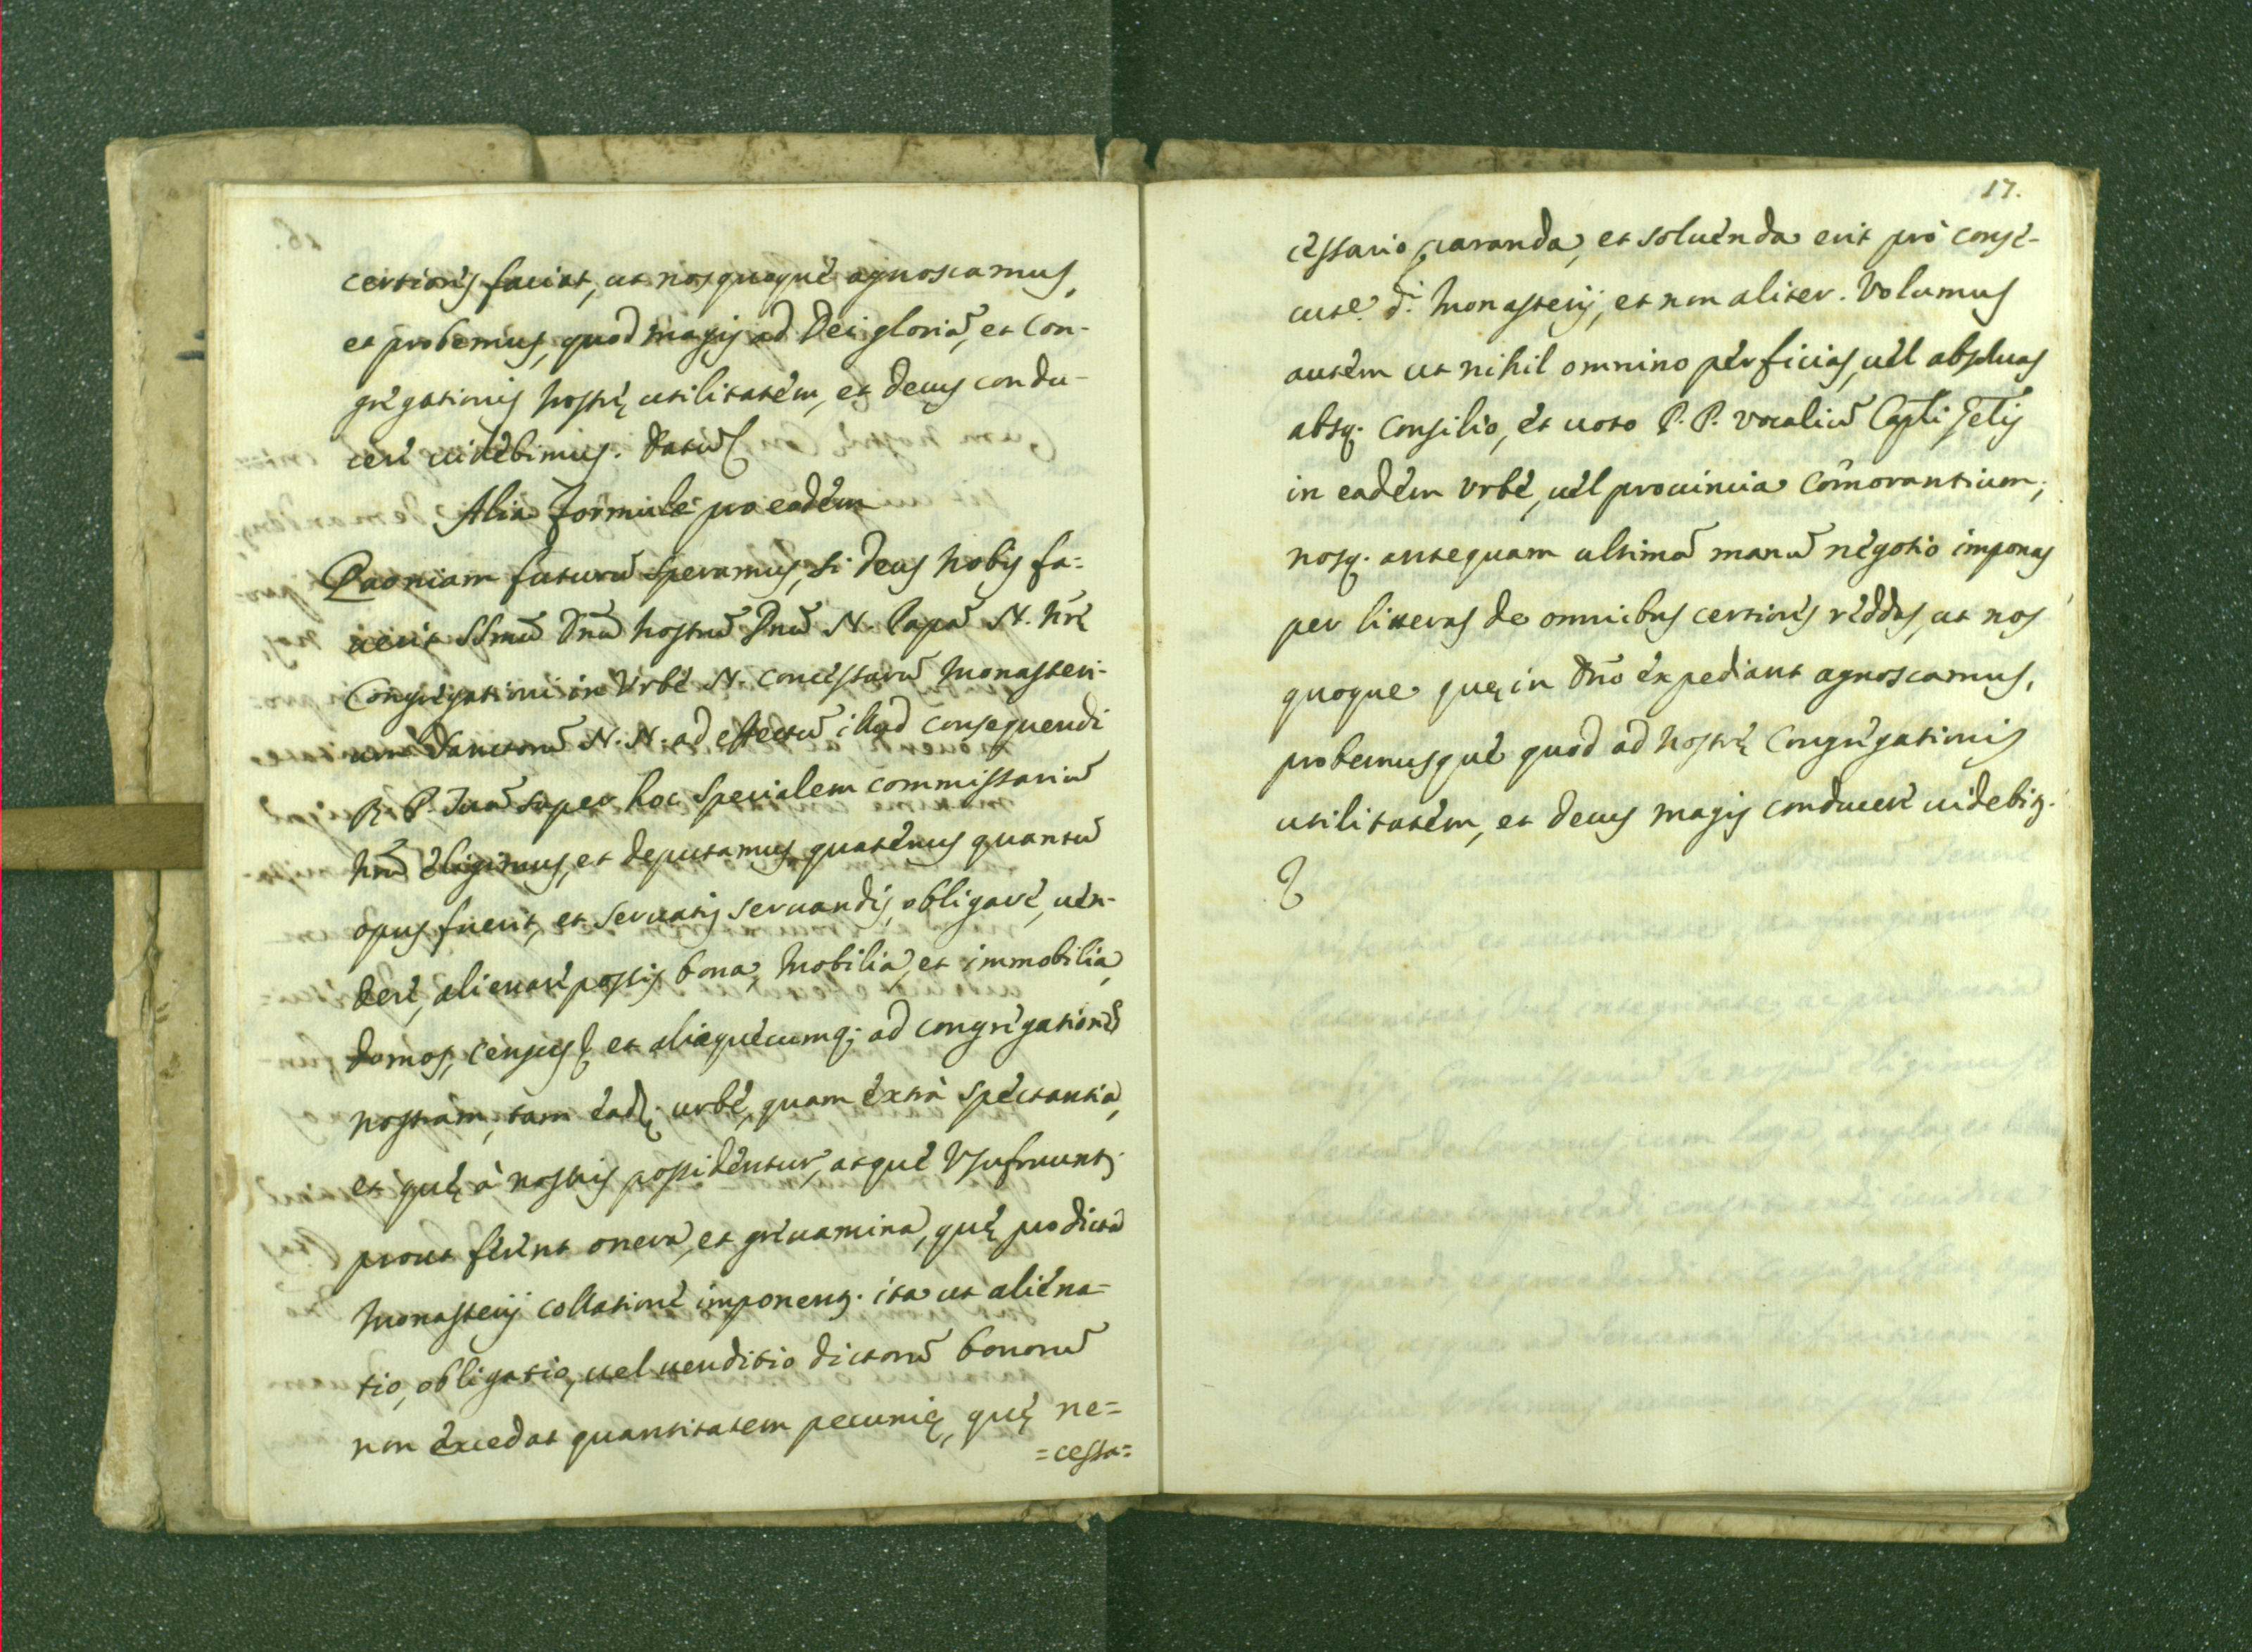 certiores faciat, ut nos quoque agnoscamus,
et probemus, quod magis ad Dei gloriã, et Con-
gregationis nostrę utilitatem, et decus condu-
cere uidebimus. Datũ
Alia formula pro eadem
Quoniam futurũ speramus, si Deus nobis fa-
uerit SSmũ Dnũ nostrũ Dnũ N. Papã N. nrę
Congregationi in Vrbe N. concessurũ Monasteri-
um Sanctorũ N. N. ad effectũ illud consequendi
R. P. Tuã super hoc specialem commissariũ
nrũ eligimus, et deputamus quatenus quantũ
opus fuerit, et seruatis seruandis, obligare, uen-
dere, alienare possis bona, mobilia, et immobilia,
domos, census et aliaquęcumq; ad congregationẽ
nostram, tam ead. urbe, quam extrà spectantia,
et quę à nostris possidentur, atque Vsufruunt;
prout ferent onera, et grauamina, quę pro dicta
Monasterij collatione imponent. ita ut aliena-
tio, obligatio, uel uenditio dictorũ bonorũ
non excedat quantitatem pecunię, quę ne=
=cessa=
17.
cessario paranda, et soluenda erit pro conse-
cut.e d.i Monasterij, et non aliter. Volumus
autem ut nihil omnino perficias, uel absoluas
absq. consilio, et uoto P. P. Vocaliũ Capli Gẽlis
in eadem Vrbe, uel prouincia Cõmorantium;
nosq. antequam ultimã manũ negotio imponas
per litteras de omnibus certiores reddas, ut nos
quoque quę in Dño expediant agnoscamus,
probemusque quod ad nostrę Congregationis
utilitatem, et decus magis conducere uidebim.